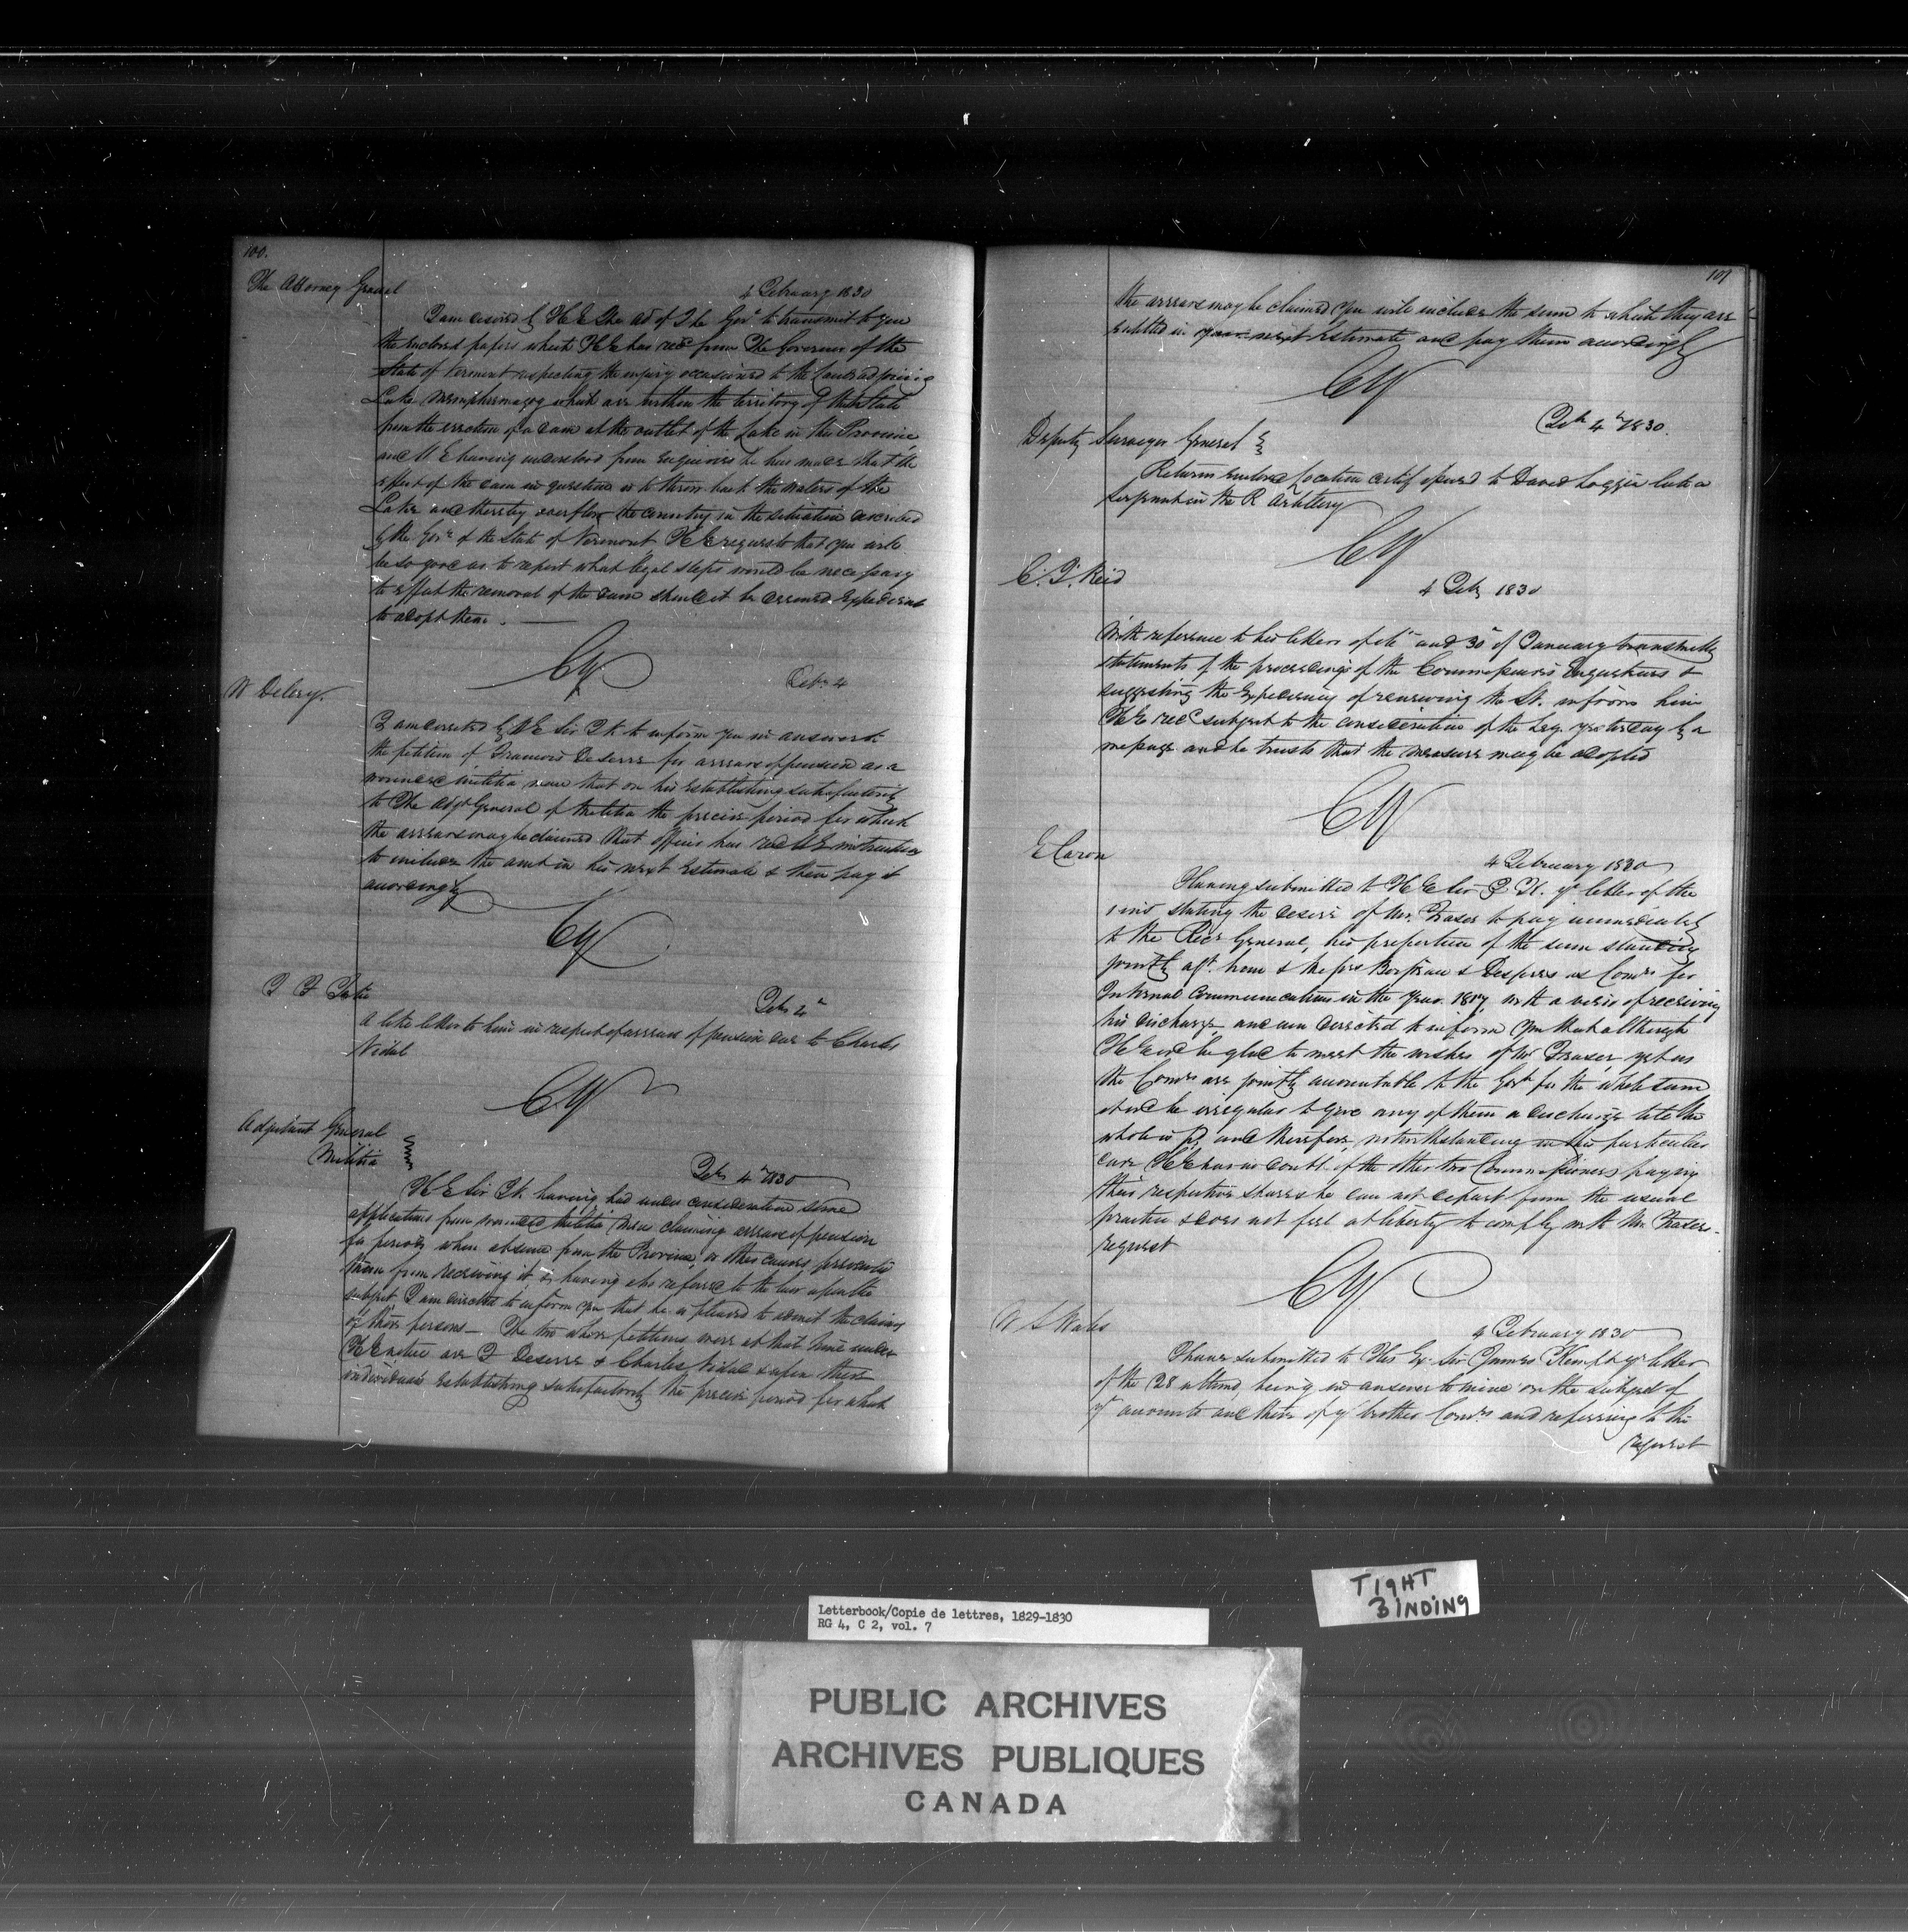 100.
The Attorney General
4 February 1830
I am desired by H E the Ad of The Gov.t to transmit to you
the inclosed papers which H E has rec.d from The Governor of the
State of Vermont respecting the injury occasioned to the lands adjoining
Lake Memphremagog which are within the territory of that State
from the erection of a dam at the outlet of the Lake in this Province
and H. E having understood from enquiries he has made that the
effect of the dam in question is to throw back the waters of the
Lake and thereby overflow the country in the situation described
by the Gov.r of the State of Vermont H E requests that you will
be so good as to report what legal steps would be necessary
to effect the removal of the dam should it be deemed expedient
to adopt them. —
CY
W Delery.
Feb. 4
I am directed by H E Sir J K to inform you in answer to
the petition of Francois Deserre for arrears of pension as a
wounded militia man that on his establishing satisfactorily
to The Adj.t General of Militia the precise period for which
the arrears may be claimed that officer has rec.d H E instructions
to include the amt in his next Estimate & then pay it
accordingly
CY
Feb. 4
a like letter to him in respect of arrears of pension due to Charles
Nidal
CY
Adjutant General
Militia
Feb. 4 1830
H E Sir J K. having had under consideration some
applications from wounded Militia Men claiming arrears of pension
for periods when absence from the Province, or other causes prevented
them from receiving it & having also referred to the law upon the
subject I am directed to inform you that he is pleased to admit the claims
of those persons — The two whose petitions were at that time under
H E notice are F Deserre & Charles Nidal & upon these
individuals establishing satisfactorily the precise period for which
101
the arrears may be claimed you will include the sum to which they are
entitled in your next Estimate and pay them accordingly
CY
Feb. 4 1830.
Deputy Surveyor General
Return enclosed location certif issued to David Loggie late a
serjeant in the R Artillery
CY
C. F. Reid
4 Feb. 1830
With reference to his letters of and 30 of January transmitting
statements of the proceedings of the Commissioners &
suggesting the expediency of renewing the St. inform him
H E rec.d subject to the consideration of the Leg. yesterday by a
message and he trusts that the measure may be adopted
CY
E Caron
4 February 1830
Having submitted to H E Sir J K. yr letter of the
1 inst stating the desire of Mr. Fraser to pay immediately
to the Rec.r General, his proportion of the sum standing
jointly agt. him & Messrs & as Com.rs for
Internal Communications in the year 1817 with a view of receiving
his discharge, and am directed to inform you that although
H E wd be glad to meet the wishes of Mr Fraser, yet as
the Com.rs are jointly accountable to the Gov.t for the whole sum
it wd be irregular to give any of them a discharge till the
whole is pd, and therefore, notwithstanding in this particular
case H E has no doubt of the other two Commissioners paying
their respective shares he can not depart from the usual
practice & does not feel at liberty to comply with Mr Fraser
request
CY
W S Wales
4 February 1830
I have submitted to His Ex. Sir James Kempt yr letter
of the 28 ultimo, being in answer to mine on the subject of
yr accounts and those of yr brother Com.rs and referring to the
request
TIGHT
BINDING
Letterbook/Copie de lettres, 1829-1830
RG 4, C 2, vol. 7
PUBLIC ARCHIVES
ARCHIVES PUBLIQUES
CANADA